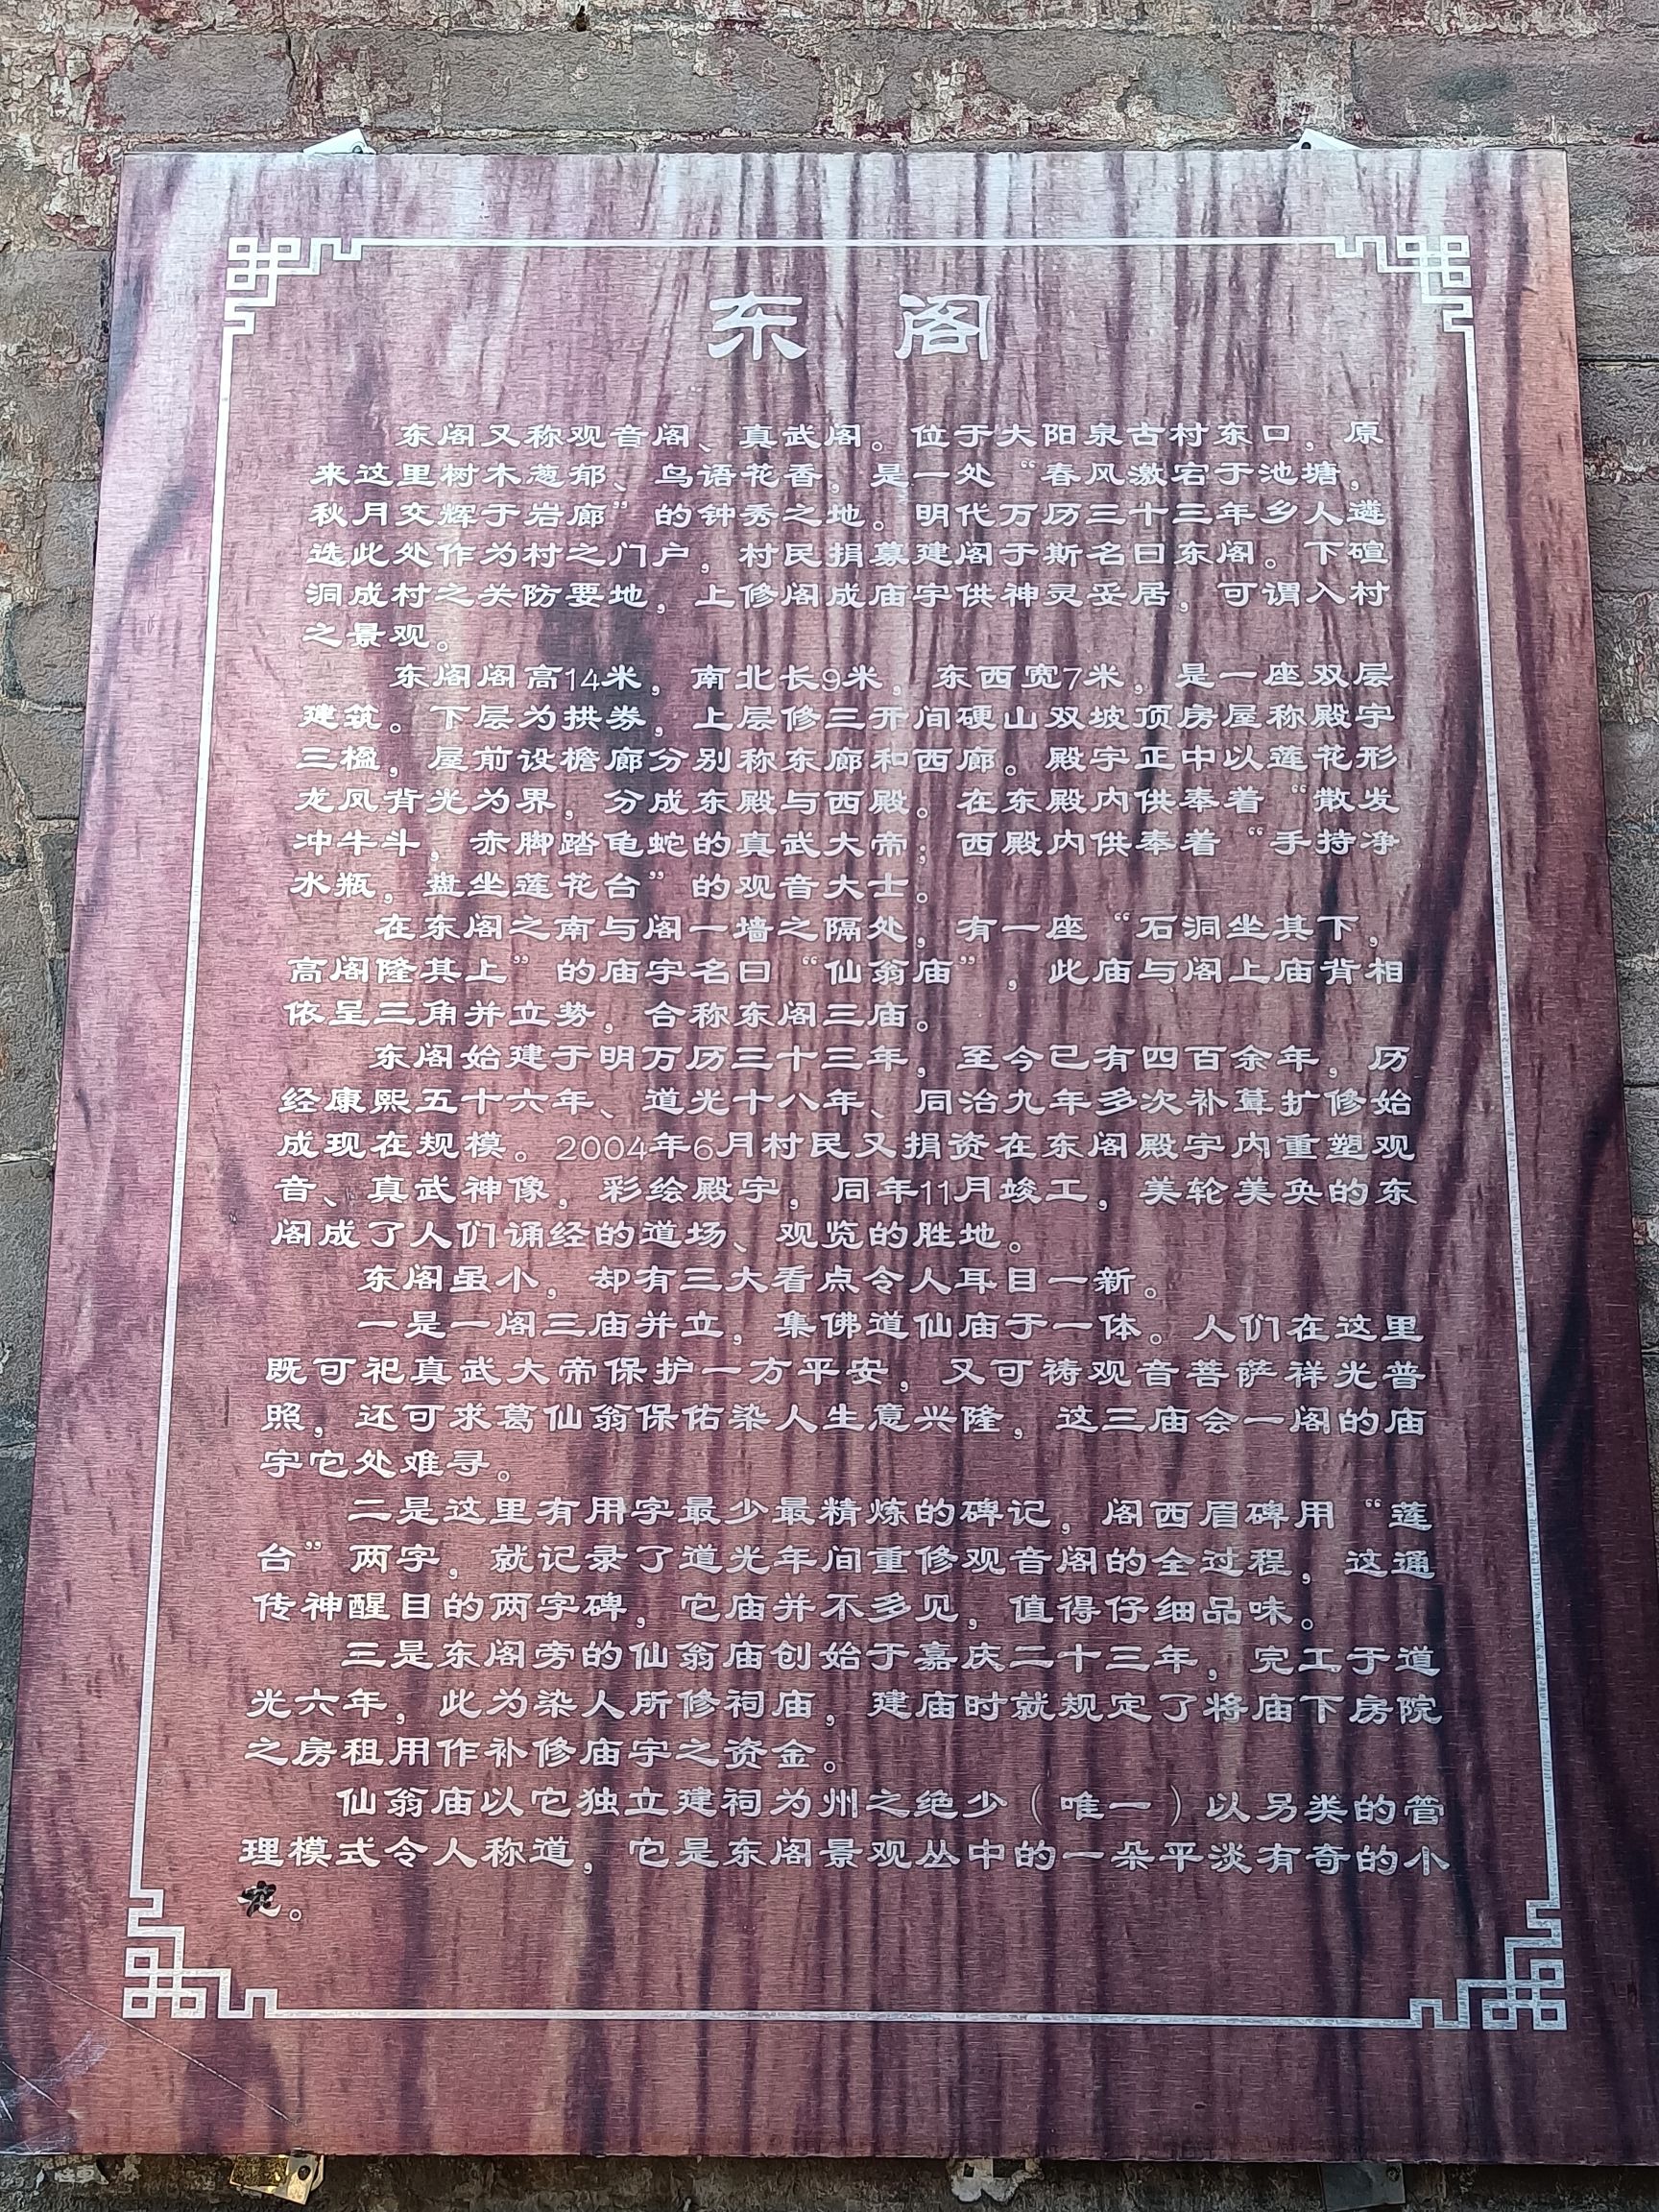 东 阁
东阁又称观音阁、真武阁。位于大阳泉古村东口，原
来这里树木葱郁、鸟语花香，是一处“春风激宕于池塘，
秋月交辉于岩廊”的钟秀之地。明代万历三十三年乡人遴
选此处作为村之门户，村民捐募建阁于斯名曰东阁。下碹
洞成村之关防要地，上修阁成庙宇供神灵妥居，可谓入村
之景观。
东阁阁高14米，南北长9米，东西宽7米，是一座双层
建筑。下层为拱券，上层修三开间硬山双坡顶房屋称殿宇
三楹，屋前设檐廊分别称东廊和西廊。殿宇正中以莲花形
龙凤背光为界，分成东殿与西殿。在东殿内供奉着“散发
冲牛斗，赤脚踏龟蛇的真武大帝；西殿内供奉着“手持净
水瓶，盘坐莲花台”的观音大士。
在东阁之南与阁一墙之隔处，有一座“石洞坐其下，
高阁隆其上”的庙宇名曰“仙翁庙”，此庙与阁上庙背相
依呈三角并立势，合称东阁三庙。
东阁始建于明万历三十三年，至今已有四百余年，历
经康熙五十六年、道光十八年、同治九年多次补葺扩修始
成现在规模。2004年6月村民又捐资在东阁殿宇内重塑观
音、真武神像，彩绘殿宇，同年11月竣工，美轮美奂的东
阁成了人们诵经的道场、观览的胜地。
东阁虽小，却有三大看点令人耳目一新。
一是一阁三庙并立，集佛道仙庙于一体。人们在这里
既可祀真武大帝保护一方平安，又可祷观音菩萨祥光普
照，还可求葛仙翁保佑染人生意兴隆，这三庙会一阁的庙
宇它处难寻。
二是这里有用字最少最精炼的碑记，阁西眉碑用“莲
台”两字，就记录了道光年间重修观音阁的全过程，这通
传神醒目的两字碑，它庙并不多见，值得仔细品味。
三是东阁旁的仙翁庙创始于嘉庆二十三年，完工于道
光六年，此为染人所修祠庙，建庙时就规定了将庙下房院
之房租用作补修庙宇之资金。
仙翁庙以它独立建祠为州之绝少（唯一）以另类的管
理模式令人称道，它是东阁景观丛中的一朵平淡有奇的小
。